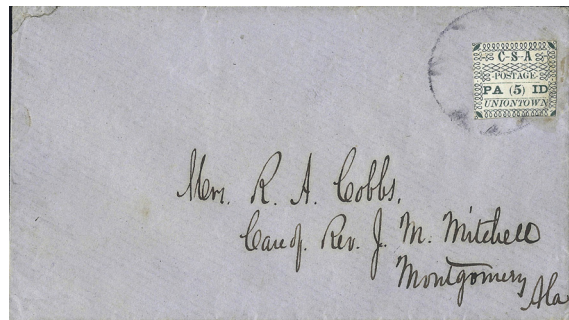 C-S-A
POSTAGE
PA (5) ID
UNIONTOWN
Mrs. R. A. Cobbs,
Care of. Rev. J. M. Mitchell
Montgomery
Ala